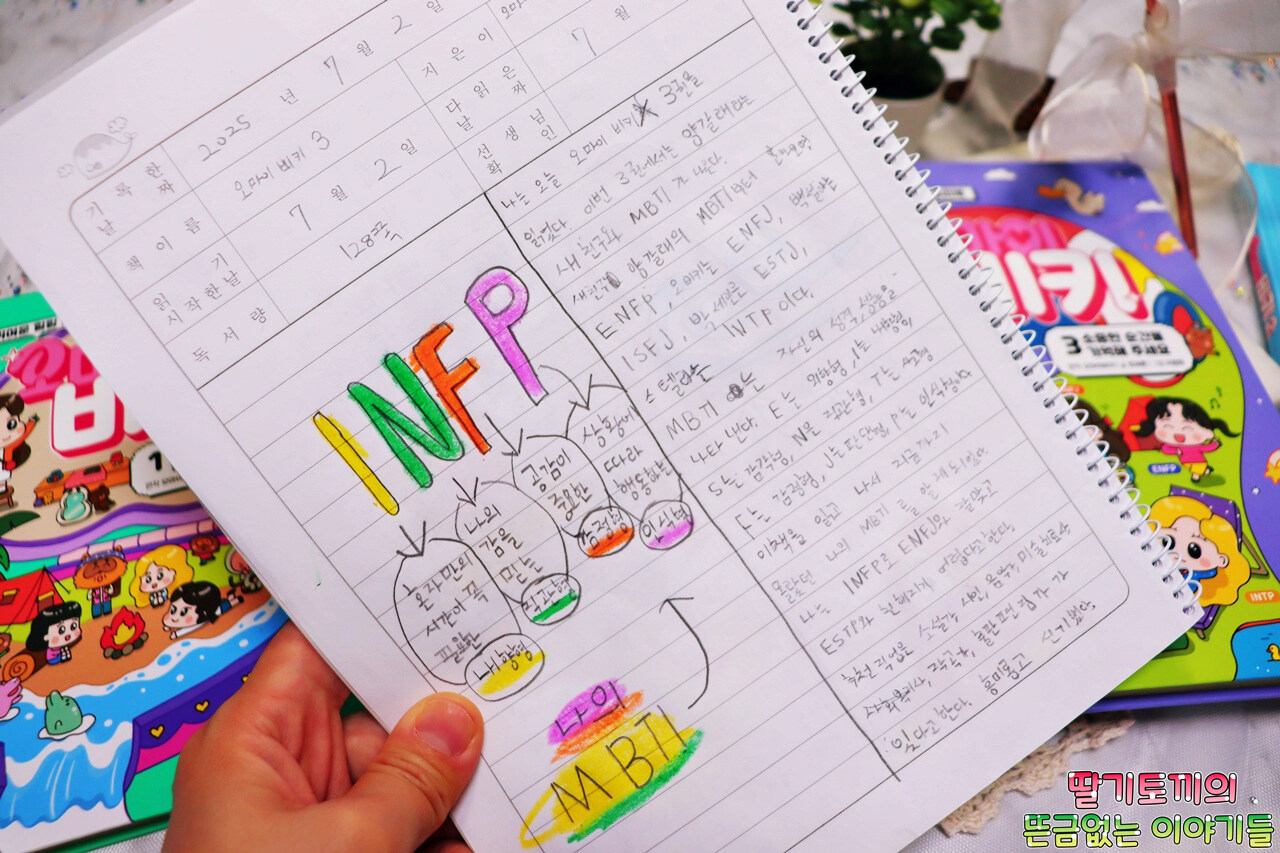 기록한 날짜
2025년 7월 2일
지은이
오마
책이름
오마이 삐키 3
다 읽은 날짜
7월
읽기 시작한날
7월 2일
선생님 확인
독서량
128쪽
INFP
혼자만의
시간이 꼭
필요한
내향형
나의
감을
믿는
직관형
공감이
중요한
감정형
상황에
따라
행동하는
인식형
나의
MBTI
나는 오늘 오마이 비키 3권을
읽었다. 이번 3권에서는 양갈래라는
새 친구와 MBTI가 나온다.
새친구 양갈래의 MBTI부터
ENFP, 오마키는 ENFJ, 백설하는
ISFJ, 박세른은 ESTJ,
스텔라는 INTP이다.
MBTI 는 자신의 성격, 성향을
나타낸다. E는 외향형, I는 내향형,
S는 감각형, N은 직관형, T는 사고형
F는 감정형, J는 판단형, P는 인식형이다
이책을 읽고 나서 지금까지
몰랐던 나의 MBTI를 알게 되었다.
나는 INFP로 ENFJ와 잘맞고
ESTP와 친해지게 어렵다고한다.
추천 직업은 소설가, 시인, 음악, 미술치료사
사회복지사, 작곡가, 출판편집자가
있다고한다. 흥미롭고 신기했다.
1
비키
3 소중한 순간을
기억해 주세요
ENFP
INTP
딸기토끼의
뜬금없는 이야기들